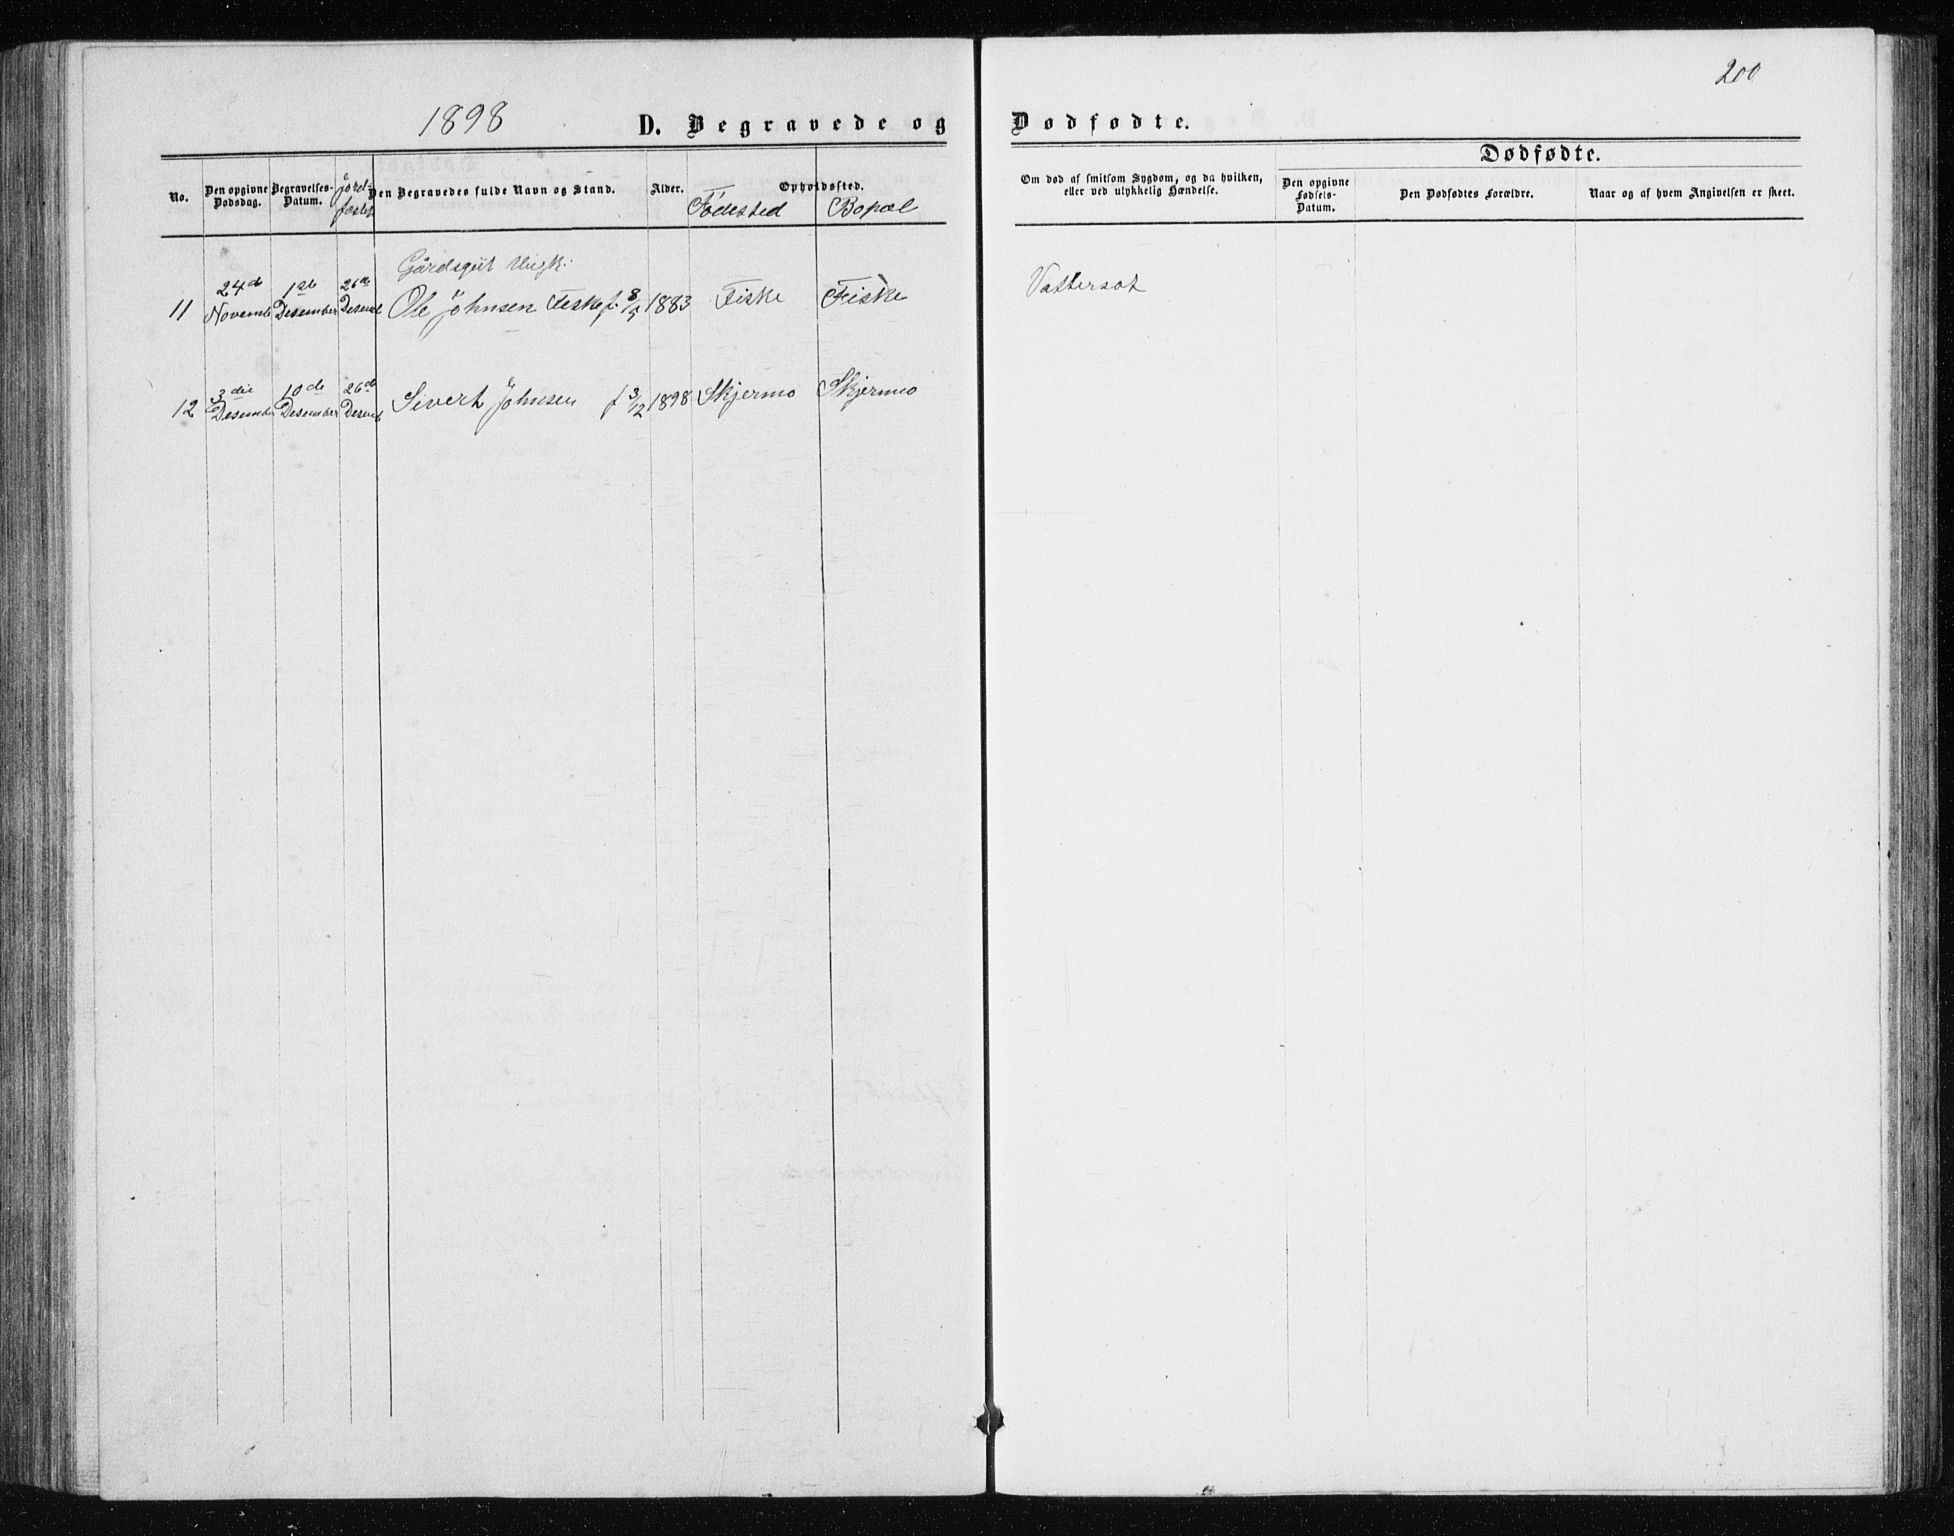 200
1898 D. Begravede og Dødfødte.
Dødfødte.
No. Den opgivne Dødsdag. Begravelses-Datum. Jord-fæstet Den Begravedes fulde Navn og Stand. Alder. Opholdssted. Fødested Bopæl
Om død af smitsom Sygdom, og da hvilken, eller ved ulykkelig Hændelse. Den opgivne Fødsels-Datum. Den Dødfødtes Forældre. Naar og af hvem Angivelsen er skeet.
Gårdsgut Ungk.
11 24de Novemb 1ste Desember 26de Desemb Ole Johnsen Fiske f. 8/5 1883 Fiske Fiske Vattersot
12 3die Desember 10de Desember 26de Desemb Sivert Johnsen f 3/12 1898 Skjermo Skjermo